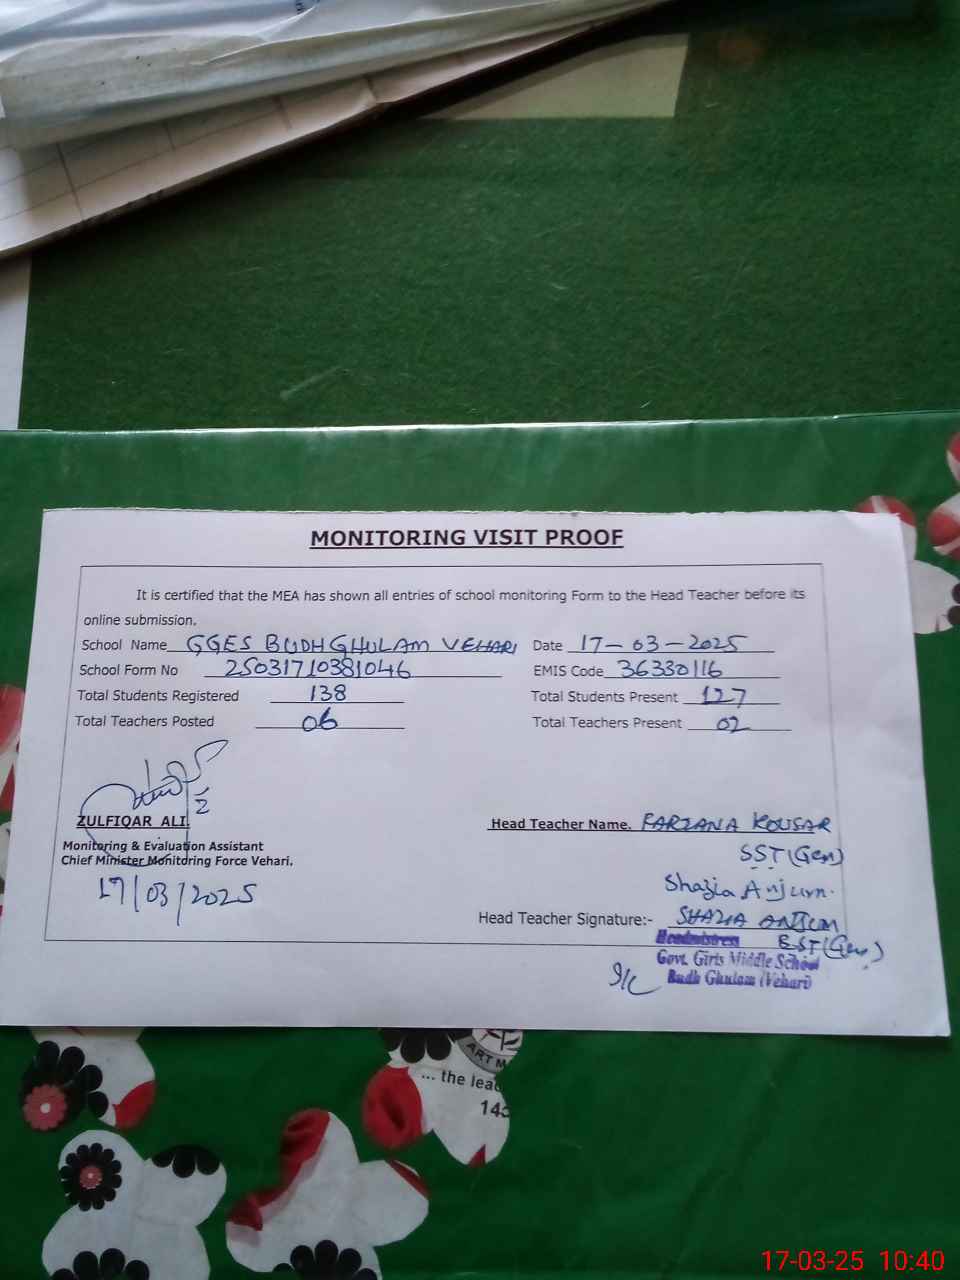 MONITORING VISIT PROOF
It is certified that the MEA has shown all entries of school monitoring Form to the Head Teacher before its
online submission.
School Name GGES BUDH GHULAM VEHARI Date 17-03-2025
School Form No 25031710381046 EMIS Code 36330116
Total Students Registered 138 Total Students Present 127
Total Teachers Posted 06 Total Teachers Present 02
ZULFIQAR ALI.
Monitoring & Evaluation Assistant
Chief Minister Monitoring Force Vehari.
17/03/2025
Head Teacher Name. FARZANA KOUSAR
SST(Gen)
Shazia Anjum.
Head Teacher Signature:- SHAZIA ANJUM
Headmistress EST(Gen)
Govt. Girls Middle School
I/C Budh Ghulam (Vehari)
ART M
... the lead
143
17-03-25 10:40